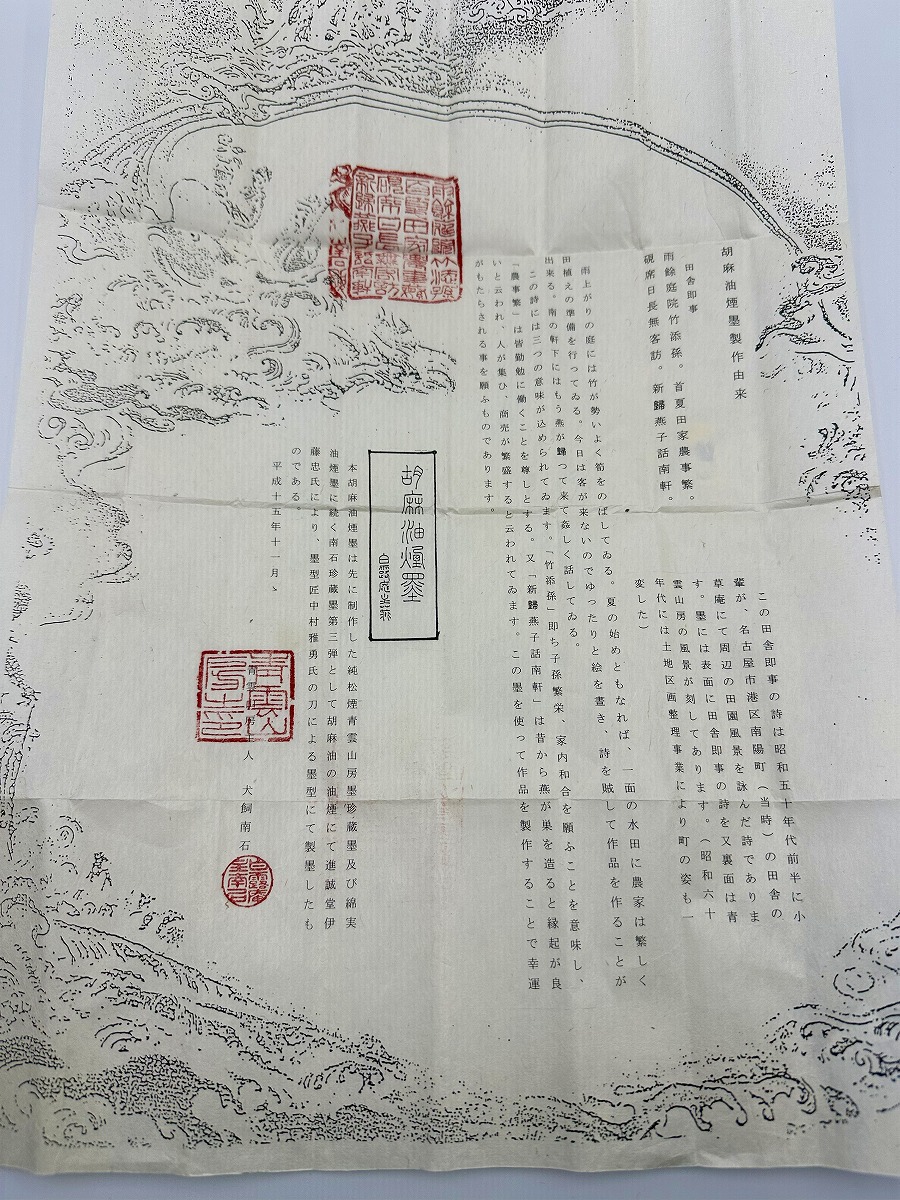 胡麻油煙墨製作由来
田舎即事
雨餘庭院竹添孫。首夏田家農事繁。
硯席日長無客訪。新歸燕子話南軒。
この田舎即事の詩は昭和五十年代前半に小
輩が、名古屋市港区南陽町（当時）の田舎の
草庵にて周辺の田園風景を詠んだ詩でありま
す。墨には表面に田舎即事の詩を又裏面は青
雲山房の風景が刻してあります。（昭和六十
年代には土地区画整理事業により町の姿も一
変した）
雨上がりの庭には竹が勢いよく筍をのばしてゐる。夏の始めともなれば、一面の水田に農家は繁しく
田植えの準備を行ってゐる。今日は客が来ないのでゆったりと絵を晝き、詩を賊して作品を作ることが
出来る。南の軒下にはもう燕が歸って来て姦しく話してゐる。
この詩には三つの意味が込められてゐます。「竹添孫」即ち子孫繁栄、家内和合を願ふことを意味し、
「農事繁」は皆勤勉に働くことを尊しとする。又「新歸燕子話南軒」は昔から燕が巣を造ると縁起が良
いと云われ、人が集ひ、商売が繁盛すると云われてゐます。この墨を使って作品を製作することで幸運
がもたらされる事を願ふものであります。
雨餘庭院竹添孫
首夏田家農事繁
硯席日長無客訪
新歸燕子話南軒
胡麻油煙墨
本胡麻油煙墨は先に制作した純松煙青雲山房墨珍蔵墨及び綿実
油煙墨に続く南石珍蔵墨第三弾として胡麻油の油煙にて進誠堂伊
藤忠氏により、墨型匠中村雅勇氏の刀による墨型にて製墨したも
のである。
平成十五年十一月ゝ
青雲山房主人　犬飼南石